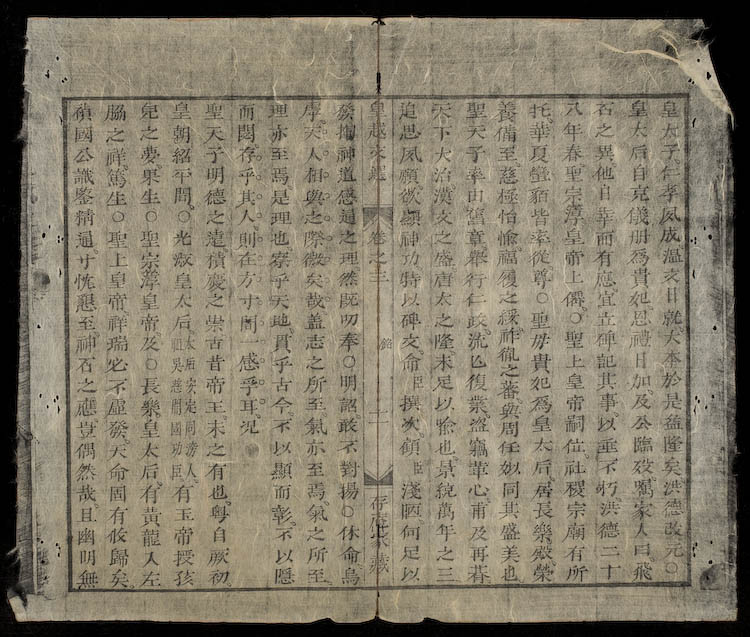 皇太子仁孝夙成溫文日就大本於是益隆矣洪德改元○
皇太后自克儀册爲貴妃恩禮日加及公臨發驚家人曰飛
石之異他日華而有應宜立碑記其事以垂不朽洪德二十
八年春聖宗淳皇帝上僊○聖上皇帝嗣位社稷宗廟有所
托華夏蠻貊皆率從尊○聖母貴妃爲皇太后居長樂殿榮
養備至慈極怡愉福履之綏祚胤之蕃與周任姒同其盛美也
聖天子率由舊章舉行仁政流亾復業盜竊革心甫及再朞
天下大治漢文之盛唐太之隆未足以喻也景統萬年之三
追思夙願欲顯神功特以碑文命臣撰次顧臣淺陋何足以
皇越文選 卷之三 銘 存庵家藏
發揚神道感通之理然既叨奉○明詔敢不對揚○休命烏
虖天人相與之際微矣哉蓋志之所至氣亦至焉氣之所至
理亦至焉是理也察乎天地貫乎古今不以顯而彰不以隱
而閟存乎其人則在方寸間一感乎耳況
聖天子明德之遠積慶之崇古昔帝王未之有也粤自厥初
皇朝紹平間○光淑皇太后太后安定同滂人祖吳慈開國功臣有玉帝授孩
兒之夢果生○聖宗淳皇帝及○長樂皇太后有黃龍入左
脇之祥篤生○聖上皇帝祥瑞必不虛發天命固有攸歸矣
碩國公識鑒精通寸忱懇至神石之應豈偶然哉且幽明無